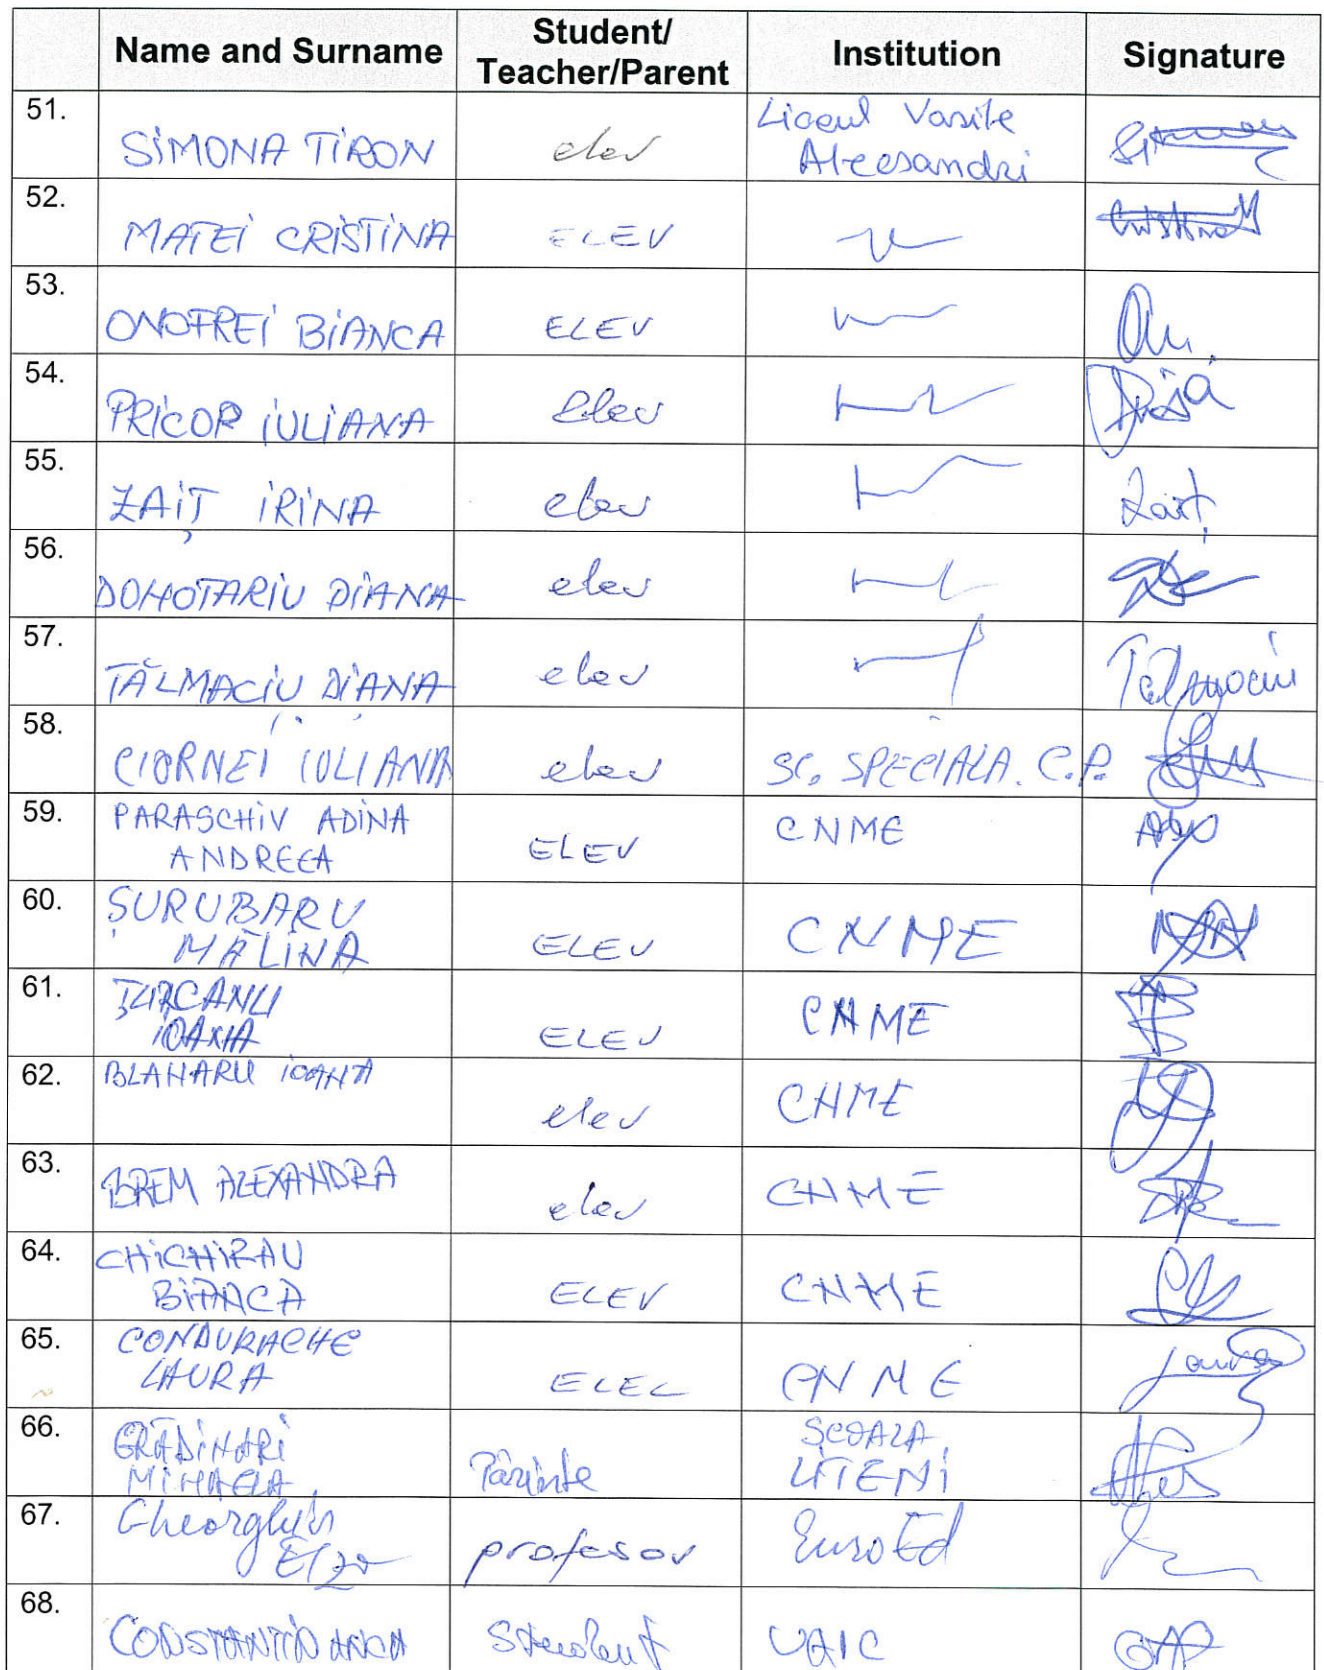 Name and Surname Student/ Teacher/Parent Institution Signature
51. SIMONA TIRON elev Liceul Vasile
Alecsandri
52. MATEI CRISTINA ELEV
53. ONOFREI BIANCA ELEV
54. PRICOP IULIANA Elev
55. ZAIȚ IRINA elev Zaiț
56. DOHOTARIU DIANA elev
57. TĂLMACIU DIANA elev Tălmaciu
58. CIORNEI IULIANA elev SC. SPECIALA. C.P.
59. PARASCHIV ADINA
ANDREEA ELEV CNME
60. ȘURUBARU
MĂLINA ELEV CNME
61. ȚURCANU
IOANA ELEV CNME
62. BLANARU IOANA elev CNME
63. BREM ALEXANDRA elev CNME
64. CHICHIRAU
BIANCA ELEV CNME
65. CONDURACHE
LAURA ELEV CNME Laura
66. GRĂDINARI
MIHAELA Părinte ȘCOALA
LITENI
67. Gheorghiu
profesor EuroEd
68. CONSTANTIN ANCA Student UAIC